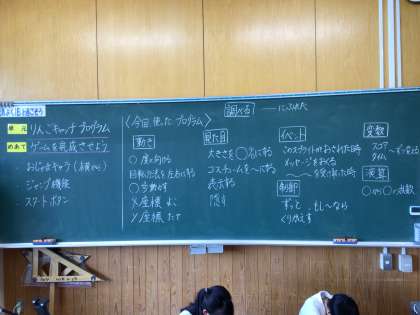 単元
りんごキャッチプログラム
めあて
ゲームを完成させよう
ジャンプ機能
スタートボタン
〈今日、使ったプログラム〉
動き
○度に向ける
回転方法を左右にする
○歩動かす
X座標 よこ
Y座標 たて
調べる
見た目
大きさを○%にする
コスチュームを〜にする
表示する
隠す
イベント
このスプライトがおされた時
メッセージをおくる
〜を受け取った時
制御
ずっと もし〜なら
くりかえす
変数
スコア
タイム
演算
○から○の乱数